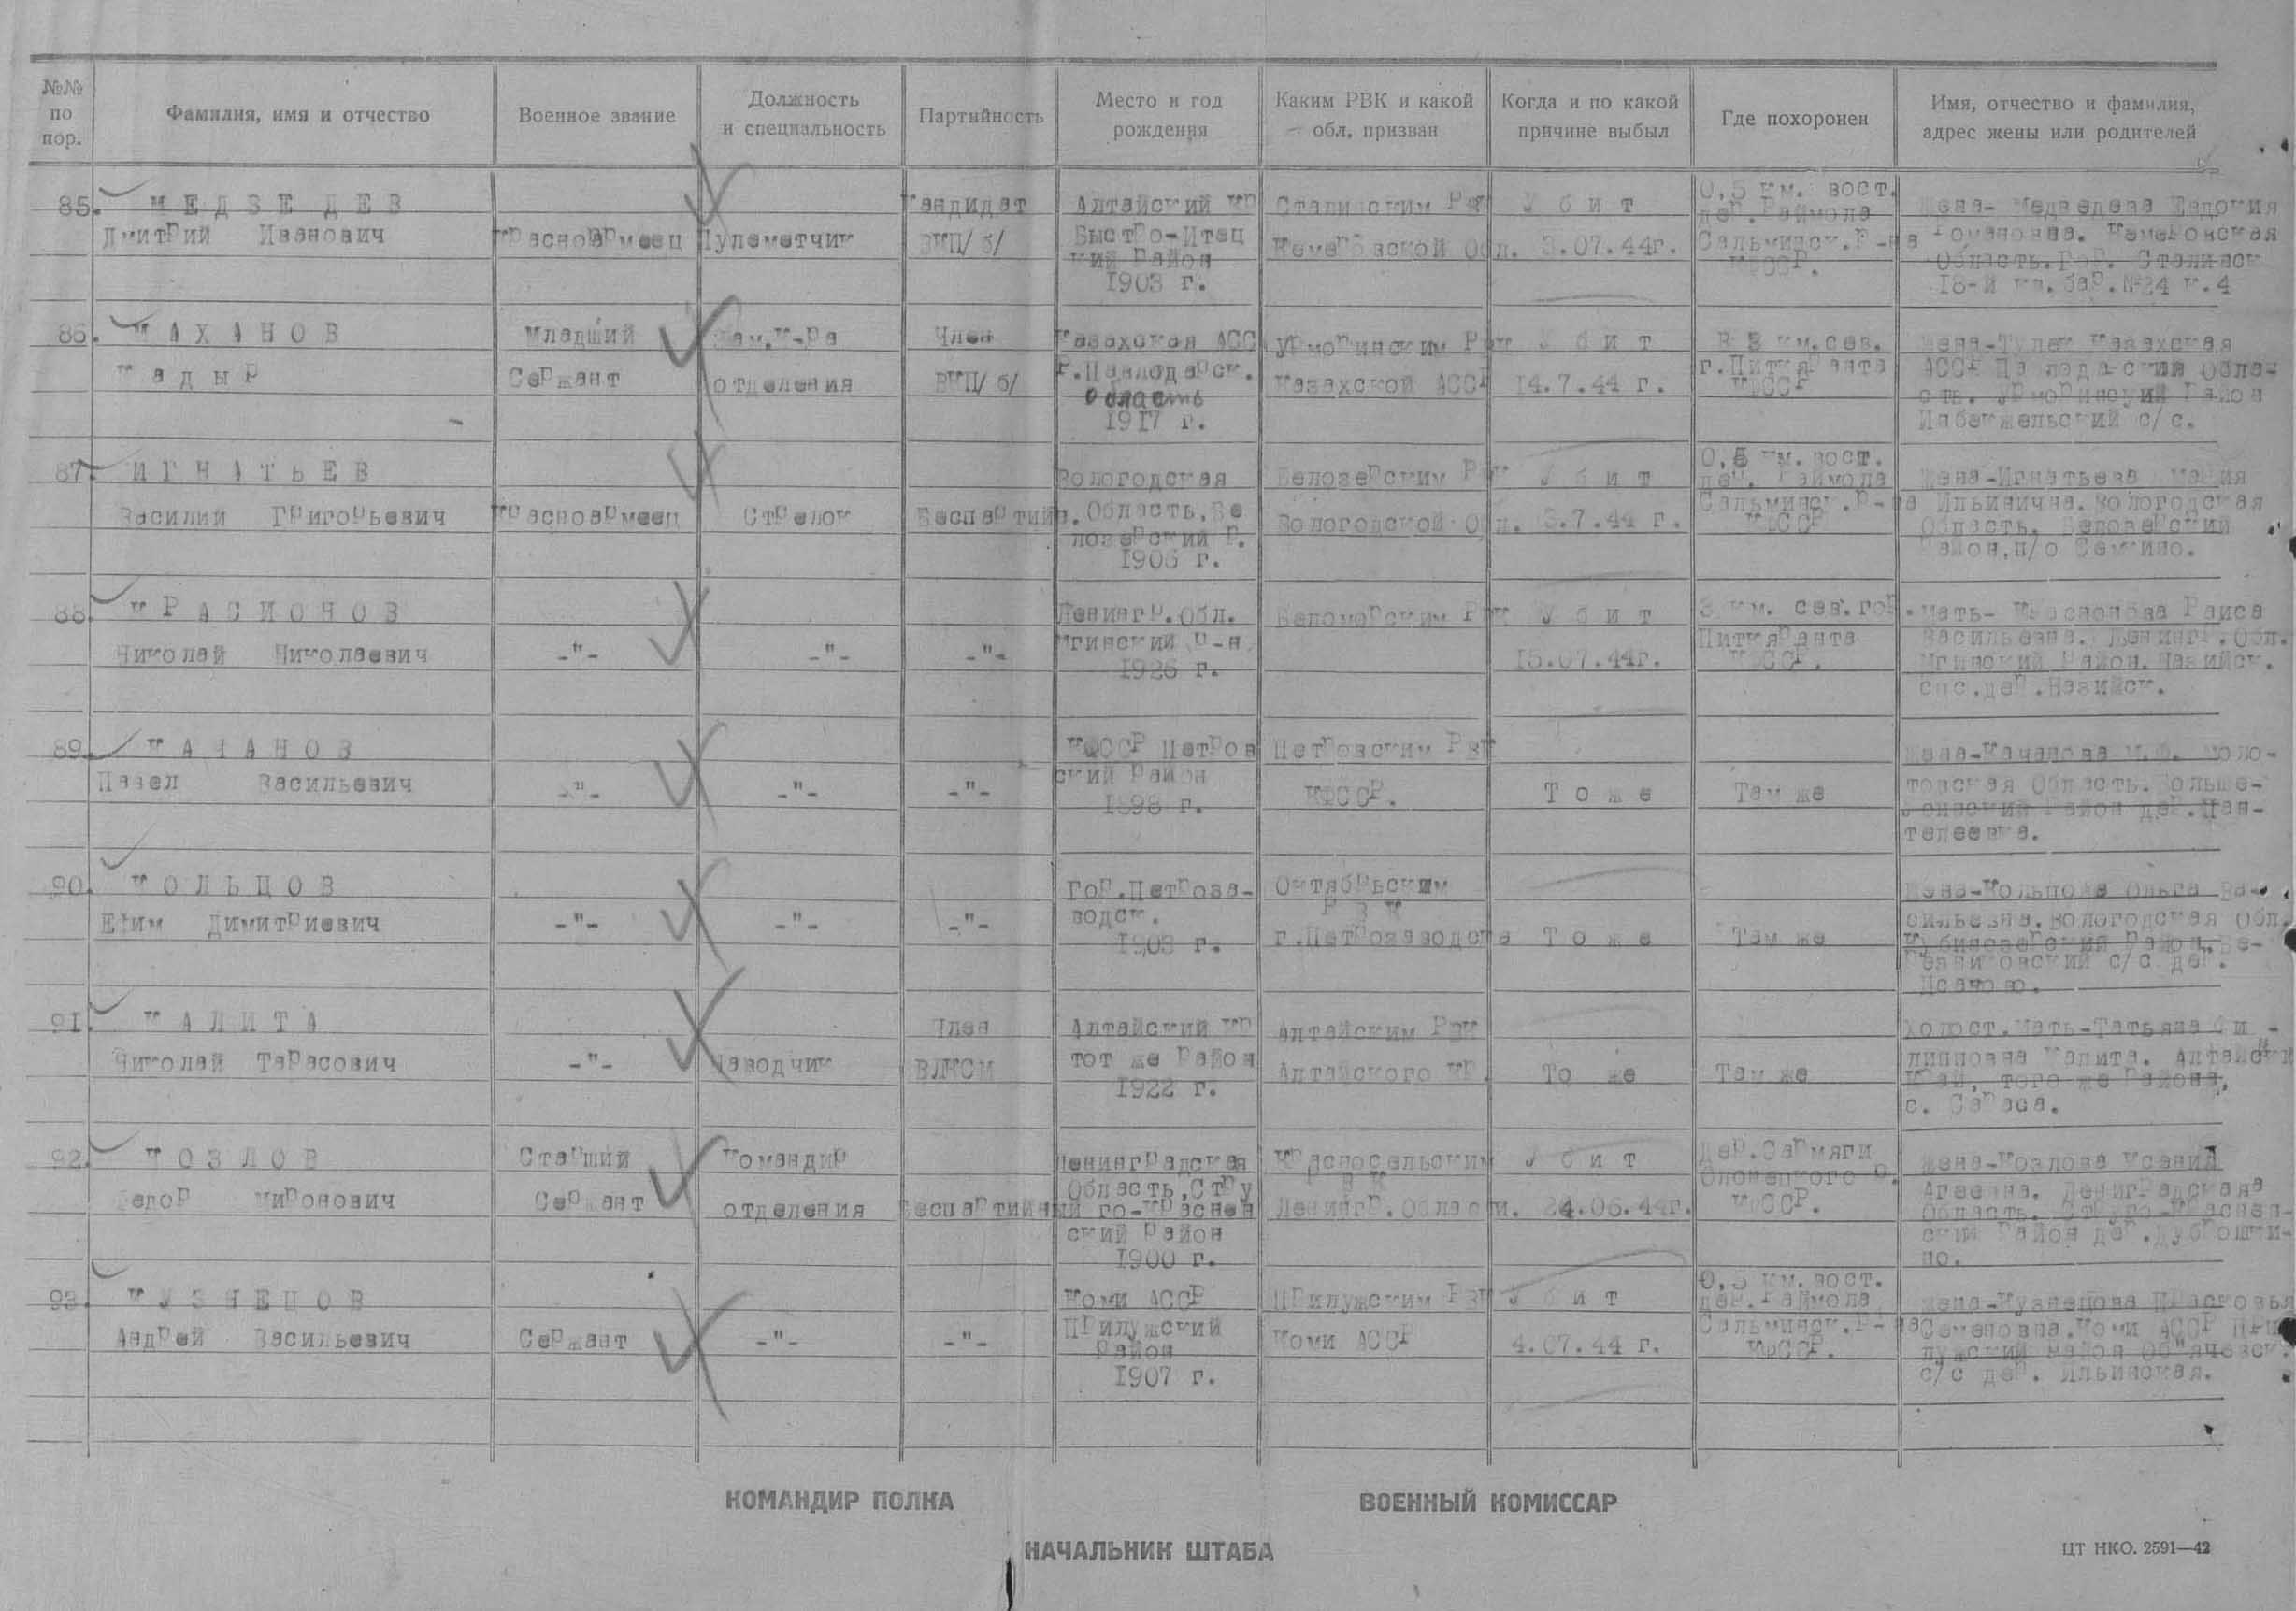 №№
по
пор.
Фамилия, имя и отчество
Военное звание
Должность
и специальность
Партийность
Место и год
рождения
Каким РВК и какой
обл, призван
Когда и по какой
причине выбыл
Где похоронен
Имя, отчество и фамилия,
адрес жены или родителей
85. МЕДВЕДЕВ
Дмитрий Иванович
Красноармеец
Пулеметчик
Кандидат
ВКП/б/
Алтайский кр
Быстро-Итец
кий Район
1903 г.
Сталинским Рвк
Кемеровской Обл.
Убит
3.07.44г.
0,5 км. вост.
дер. Раймола
Сальминск.Р-на
КФССР.
Жена- Медведева Евдокия
Романовна. Кемеровская
Область.Гор. Сталинск
18-й кв. бар.№24 к.4
86. МАХАНОВ
Кадыр
Младший
Сержант
Зам.к-ра
отделения
Член
ВКП/б/
Казахская АСС
Р.Павлодарск.
Область
1917 г.
Урмопинским Рвк
Казахской АССР
Убит
14.7.44 г.
В 3 км.сев.
г.Питкяранта
КФССР
Жена-Тулек Казахская
АССР
Район
с/с.
87. ИГНАТЬЕВ
Василий Григорьевич
Красноармеец
Стрелок
Беспартийн.
Вологодская
Область, Бе
лозерский Р.
1906 г.
Белозерским Рвк
Вологодской Обл.
Убит
3.7.44 г.
0,5 км. вост.
дер. Раймола
Сальминск.Р-на
КФССР
Жена-Игнатьева Мария
Ильинична. Вологодская
Область. Белозерский
Район,п/о Семкино.
88. КРАСИОНОВ
Николай Николаевич
-"-
-"-
-"-
Ленингр.Обл.
Мгинский Р-н
1926 г.
Беломорским Рвк
Убит
15.07.44г.
3 км. сев.гор.
Питкяранта
КФССР.
Мать- Раиса
Васильевна. Ленингр.Обл.
Мгинский Район.
89. КАЧАНОВ
Павел Васильевич
-"-
-"-
-"-
КФССР Петров
ский Район
1898 г.
Петровским Рвк
КФССР.
Тоже
Там же
Жена-Качанова М.Ф. Моло-
товская Область. Больше-
Район дер.Пан-
телеевка.
90. КОЛЬЦОВ
Ефим Димитриевич
-"-
-"-
-"-
Гор.Петроза-
водск.
1903 г.
Октябрьским
РВК
г.Петрозаводска
Тоже
Там же
Жена-Кольцова Ольга Ва-
сильевна. Вологодская Обл.
Кубинозерский Район. Бе-
резниковский с/с дер.
91. КАЛИТА
Николай Тарасович
-"-
Наводчик
Член
ВЛКСМ
Алтайский кр
тот же Район
1922 г.
Алтайским Рвк
Алтайского кр.
То же
Там же
Холост.Мать-Татьяна Фи -
липповна Калита. Алтайский
Край, того же Района,
с. Сараса.
92. КОЗЛОВ
Федор Миронович
Старший
Сержант
Командир
отделения
Беспартийный
Ленинградская
Область,Стру
го-Краснен
ский Район
1900 г.
Красносельским
РВК
Ленингр.Области.
Убит
24.06.44г.
Дер.Сармяги
Олонецкого Р.
КФССР.
Жена-Козлова Ксения
Агеевна. Лениградская
Область. Струго-Краснен-
ский Район дер.Дуброшки-
но.
93. КУЗНЕЦОВ
Андрей Васильевич
Сержант
-"-
-"-
Коми АССР
Прилужский
Район
1907 г.
Прилужским Рвк
Коми АССР
Убит
4.07.44 г.
0,5 км.вост.
дер. Раймола
Сальминск.Р-на
КФССР.
Жена-Кузнецова Прасковья
Семеновна.Коми АССР При
лужский район Об"ячевск.
с/с дер. Ильинская.
КОМАНДИР ПОЛКА
ВОЕННЫЙ КОМИССАР
НАЧАЛЬНИК ШТАБА
ЦТ НКО. 2591—42